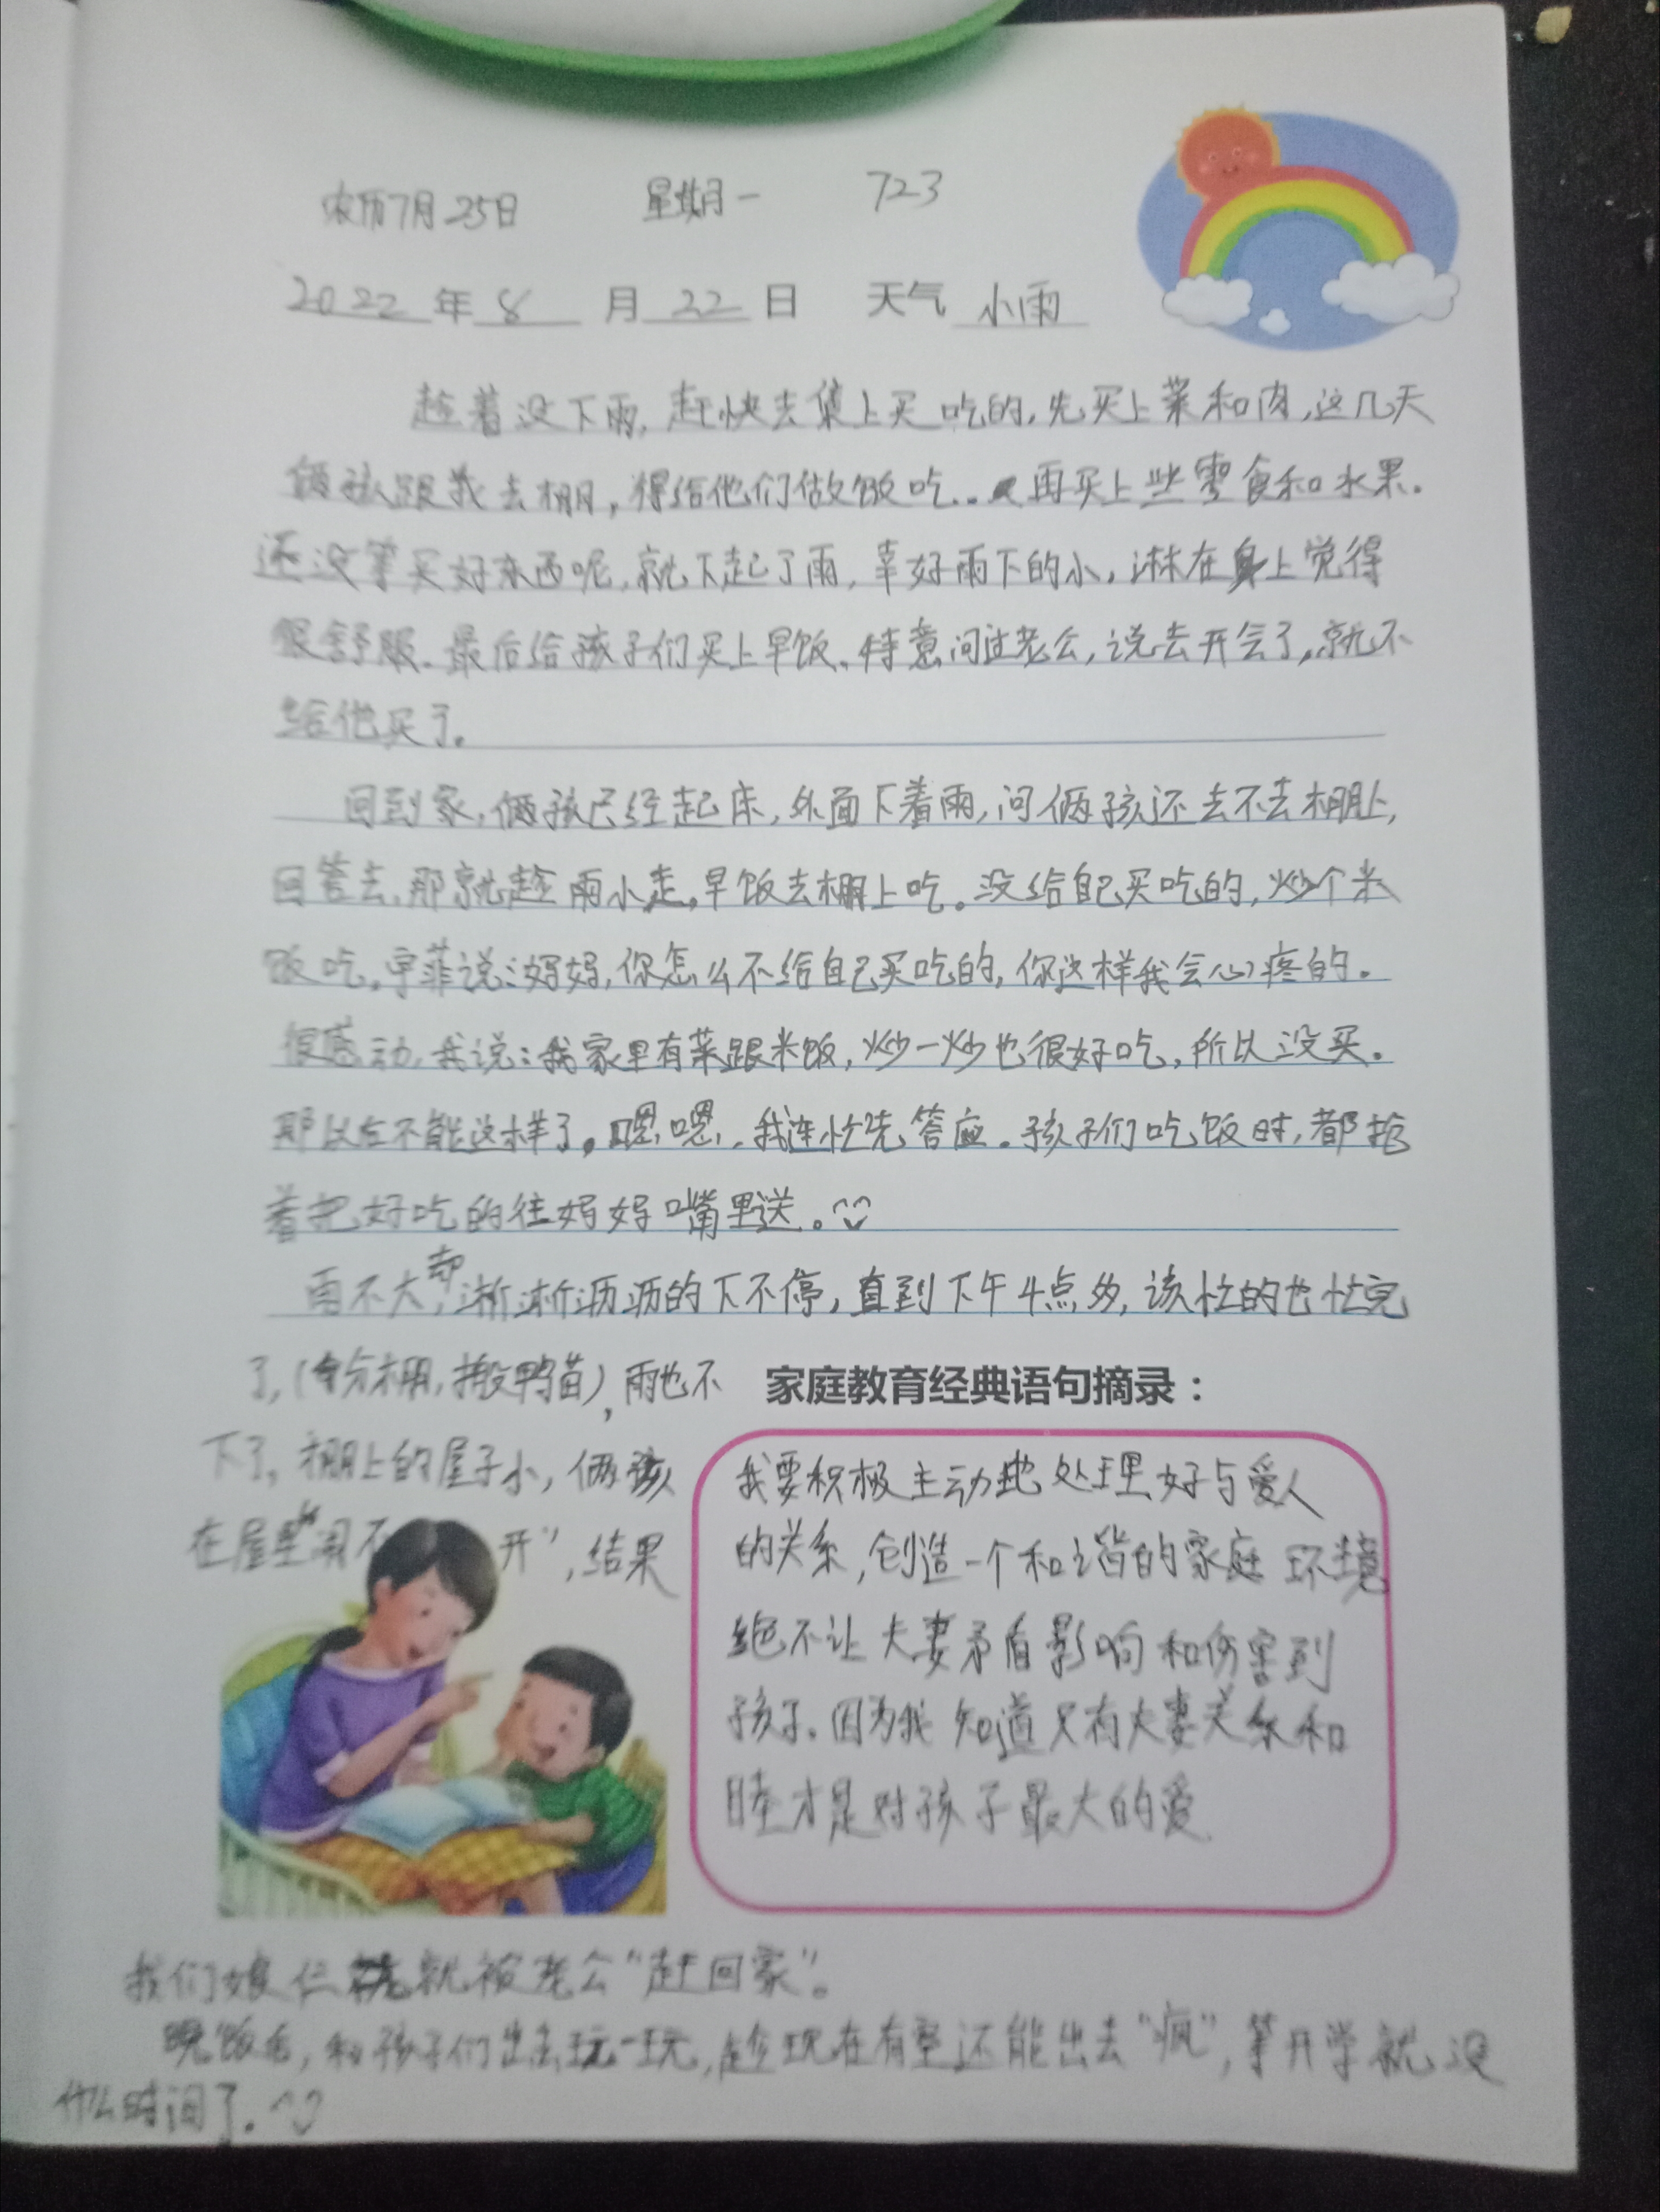 农历7月25日 星期一 723
2022年8月22日 天气 小雨
趁着没下雨,赶快去集上买吃的,先买上菜和肉,这几天
俩孩跟我去棚,得给他们做饭吃..再买上些零食和水果.
还没等买好东西呢,就下起了雨,幸好雨下的小,淋在身上觉得
很舒服.最后给孩子们买上早饭.特意问过老公,说去开会了,就不
给他买了.
回到家,俩孩已经起床,外面下着雨,问俩孩还去不去棚上,
回答去,那就趁雨小走,早饭去棚上吃。没给自己买吃的,炒个米
饭吃.宇菲说:妈妈,你怎么不给自己买吃的,你这样我会心疼的.
很感动,我说:我家里有菜跟米饭,炒一炒也很好吃,所以没买.
那以后不能这样了。嗯嗯,我连忙先答应.孩子们吃饭时,都抢
着把好吃的往妈妈嘴里送。
雨不大,却淅淅沥沥的下不停,直到下午4点多,该忙的也忙完
了,(分棚,搬鸭苗),雨也不
下了,棚上的屋子小,俩孩
在屋里"闹不开",结果
家庭教育经典语句摘录:
我要积极主动地处理好与爱人
的关系,创造一个和谐的家庭环境
绝不让夫妻矛盾影响和伤害到
孩子.因为我知道只有夫妻关系和
睦才是对孩子最大的爱.
我们娘仨就被老公"赶回家"。
晚饭后,和孩子们出去玩一玩,趁现在有空还能出去"疯",等开学就没
什么时间了.